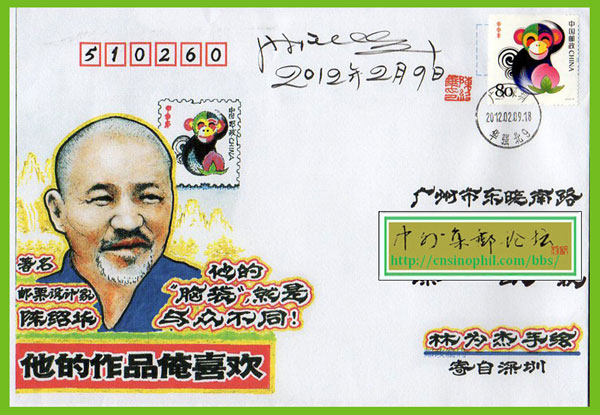 510260
2012年2月9日
中国邮政 CHINA
80分
2012.02.09.18
中国邮政 CHINA
广州市东晓南路
中外集邮论坛
http://cnsinophil.com/bbs/
著名
邮票设计家
陈绍华
他的
“脑袋”就是
与众不同!
他的作品俺喜欢
林为杰手绘
寄自深圳